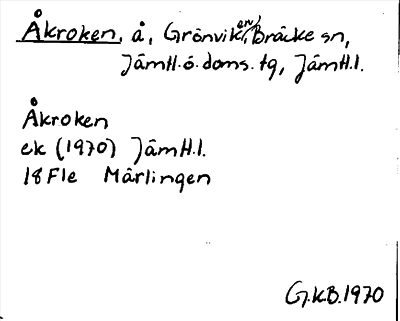 Åkroken, å, Grönviken, Bräcke sn,
Jämtl.ö.doms.tg, Jämtl.l.
Åkroken
ek (1970) Jämtl.l.
18Fle Mårlingen
G.K.B. 1970